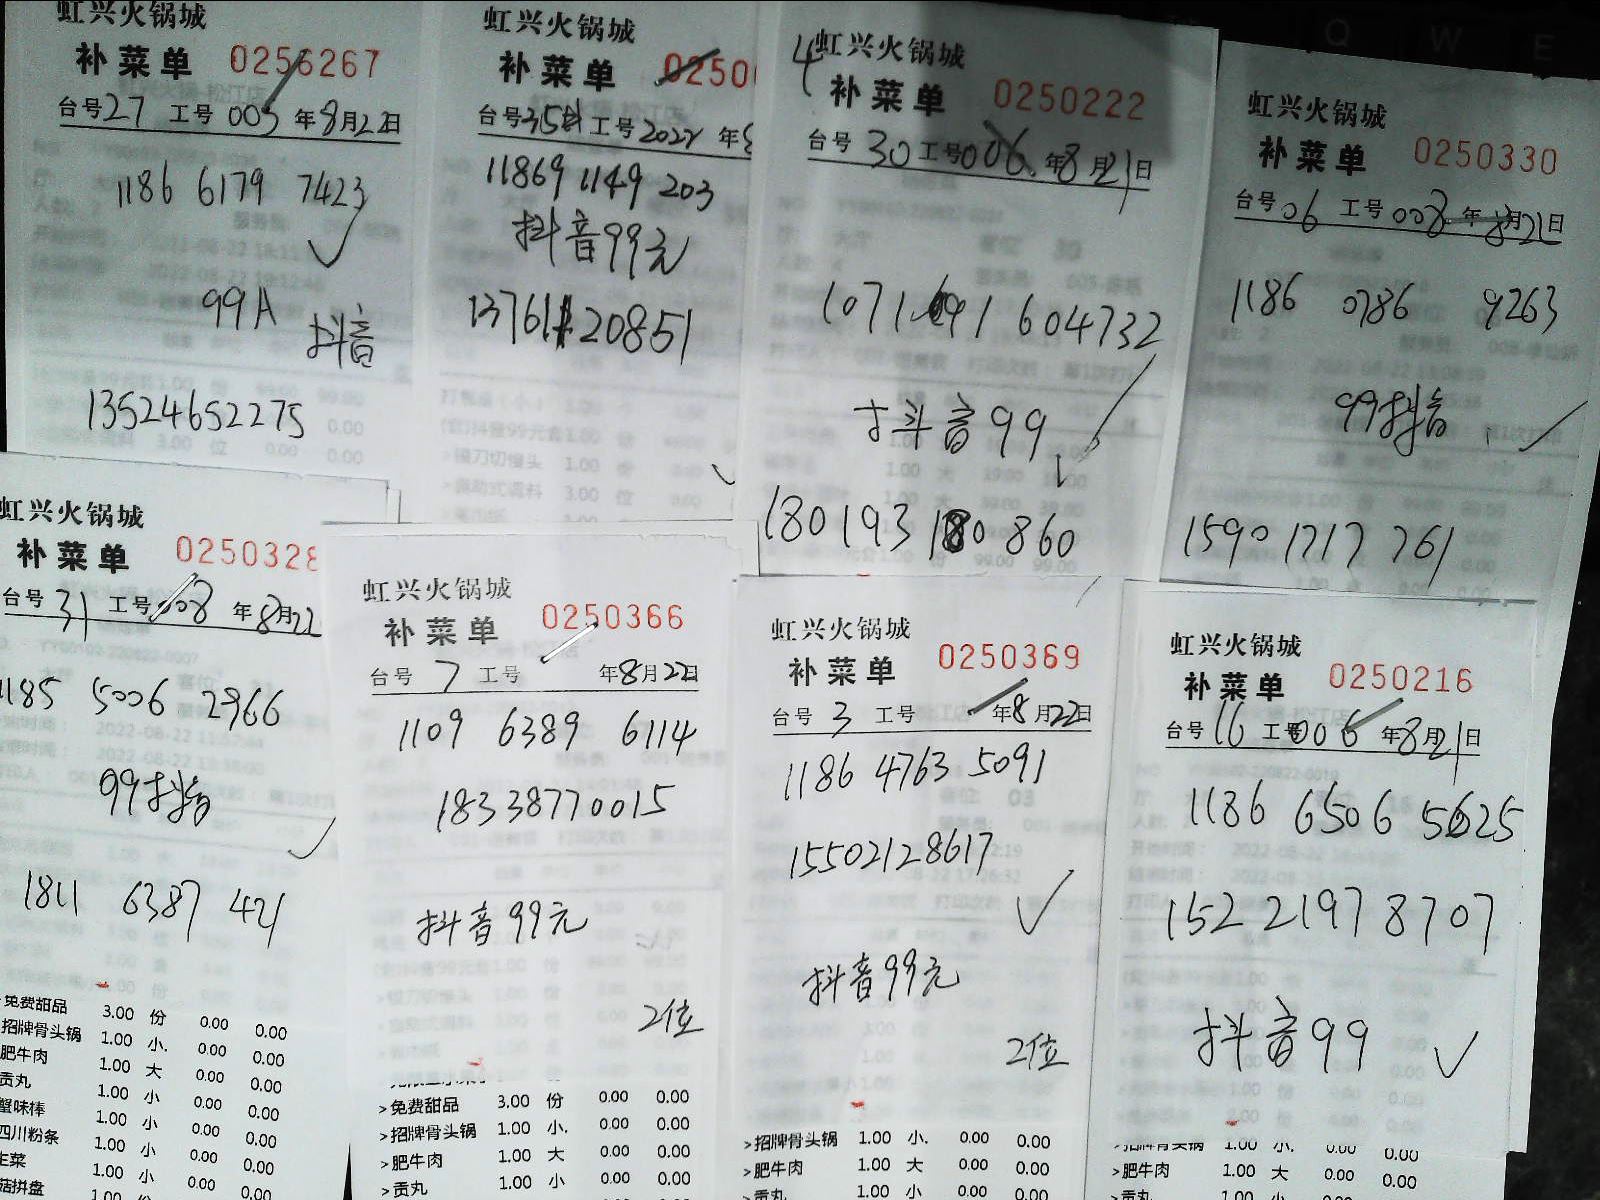 虹兴火锅城
补菜单 0256267
台号27 工号003 年8月22日
1186 6179 7423
99A
抖音
13524652275
虹兴火锅城
补菜单 02500
台号35 工号2022 年8
11869 1149 203
抖音99元
13761120851
4 虹兴火锅城
补菜单 0250222
台号30 工号006 年8月21日
604732
抖音99
180193 180 860
虹兴火锅城
补菜单 0250330
台号06 工号008 年8月21日
1186 0786 9263
99抖音
1590 1717 761
虹兴火锅城
补菜单 0250328
台号31 工号008 年8月22
1185 5006 2966
99抖音
1811 6387 421
免费甜品 3.00 份 0.00 0.00
招牌骨头锅 1.00 小. 0.00 0.00
肥牛肉 1.00 大 0.00 0.00
贡丸 1.00 小 0.00 0.00
蟹味棒 1.00 小 0.00 0.00
四川粉条 1.00 小 0.00 0.00
生菜 1.00 小 0.00 0.00
菇拼盘 1.00 0.00 0.00
虹兴火锅城
补菜单 0250366
台号 7 工号 年8月22日
1109 6389 6114
18338770015
抖音99元
2位
>免费甜品 3.00 份 0.00 0.00
>招牌骨头锅 1.00 小. 0.00 0.00
>肥牛肉 1.00 大 0.00 0.00
>贡丸 1.00 小 0.00 0.00
虹兴火锅城
补菜单 0250369
台号 3 工号 年8月22日
1186 4763 5091
15502128617
抖音99元
2位
>招牌骨头锅 1.00 小. 0.00 0.00
>肥牛肉 1.00 大 0.00 0.00
>贡丸 1.00 小 0.00 0.00
虹兴火锅城
补菜单 0250216
台号16 工号006 年8月21日
1186 6506 5625
152 2197 8707
抖音99
>招牌骨头锅 1.00 小. 0.00 0.00
>肥牛肉 1.00 大 0.00 0.00
>贡丸 1.00 小 0.00 0.00